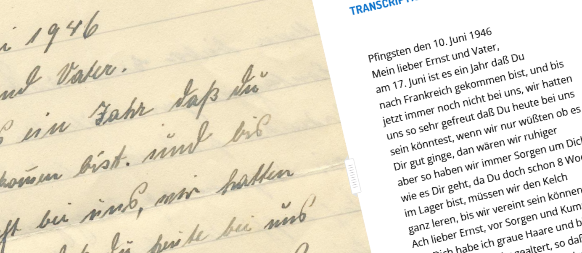 i 1946
nd Vater.
s ein Jahr daß du
kommen bist. und bis
ft bei uns, wir hatten
du heute bei uns
TRANSCRIPT
Pfingsten den 10. Juni 1946
Mein lieber Ernst und Vater,
am 17. Juni ist es ein Jahr daß Du
nach Frankreich gekommen bist, und bis
jetzt immer noch nicht bei uns, wir hatten
uns so sehr gefreut daß Du heute bei uns
sein könntest, wenn wir nur wüßten ob es
Dir gut ginge, dan wären wir ruhiger
aber so haben wir immer Sorgen um Dich
wie es Dir geht, da Du doch schon 8 Wo
im Lager bist, müssen wir den Kelch
ganz leren, bis wir vereint sein können
Ach lieber Ernst, vor Sorgen und Kum
Dich habe ich graue Haare und b
gealtert, so daß